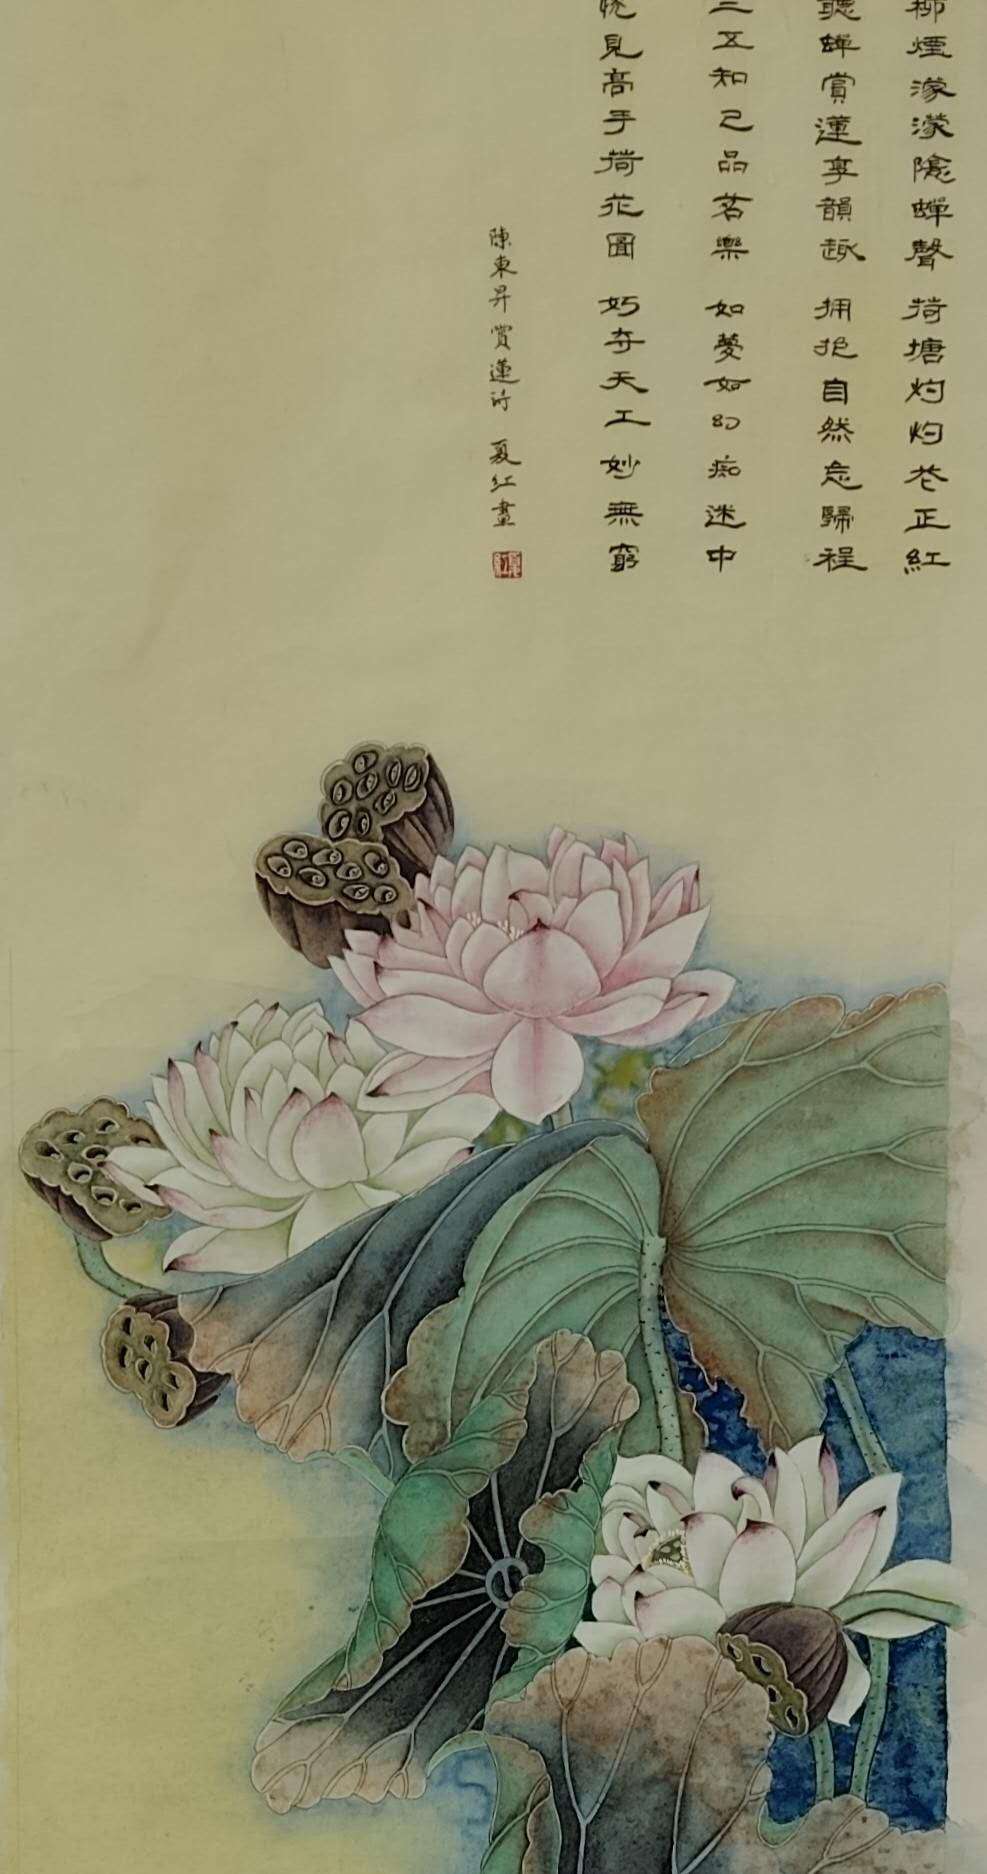 柳煙濛濛隐蟬聲 荷塘灼灼花正紅
聽蟬賞蓮享韻趣 拥抱自然忘歸程
三五知己品茗樂 如夢如幻痴迷中
恍見高手荷花圖 巧夺天工妙無窮
陳東昇賞蓮诗 夏红畫